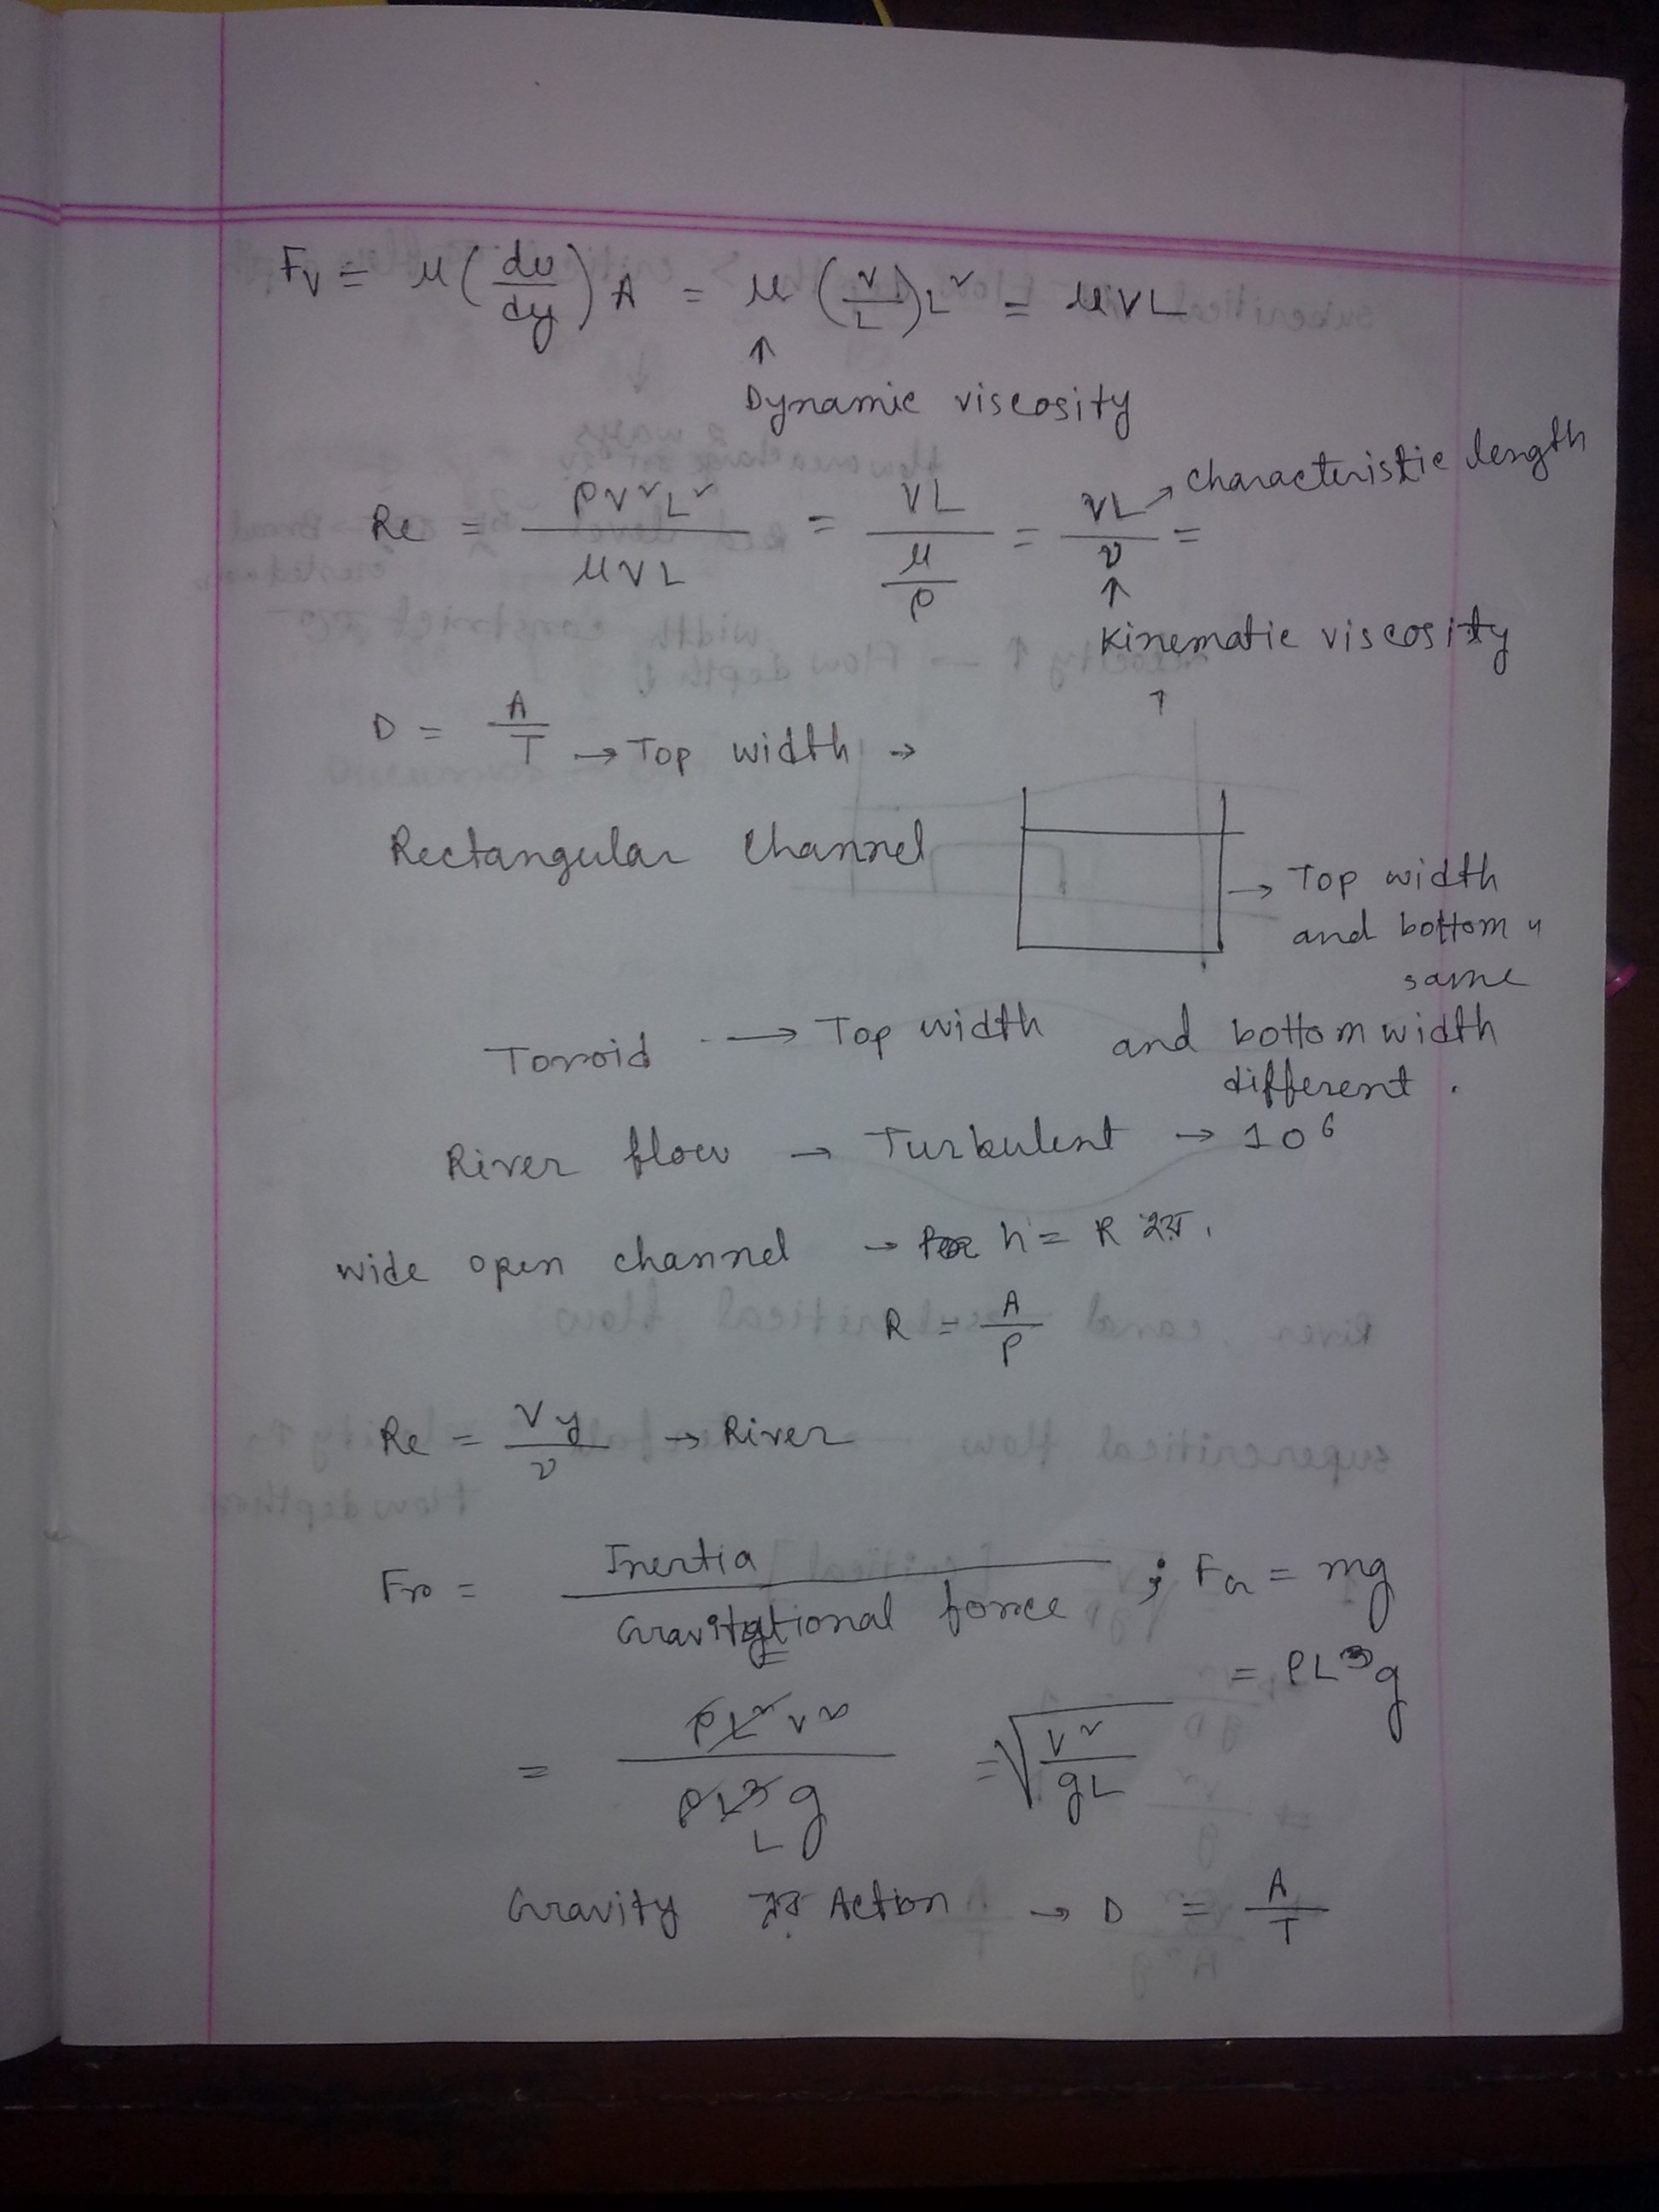 F_V = μ (du/dy) A = μ (V/L) L² = μVL
↑
Dynamic viscosity
Re = ρV²L² / μVL = VL / (μ/ρ) = VL/ν = → characteristic length
↑
Kinematic viscosity
↑
D = A/T → Top width →
Rectangular Channel
→ Top width
and bottom "
same
Toroid → Top width and bottom width
different.
River flow → Turbulent → 10⁶
wide open channel → h = R হয়.
R = A/P
Re = Vy/ν → River
Fr = Inertia / Gravitational force ; F_G = mg
= ρL³g
= ρL²V² / ρL³g = √(V²/gL)
L
Gravity এর Action → D = A/T